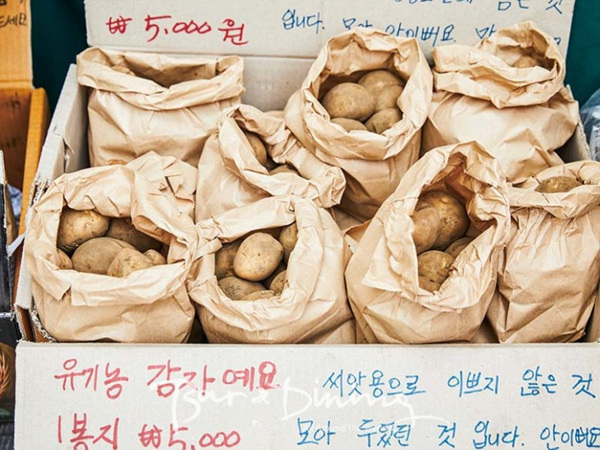 ₩5,000원
입니다. 모아 안이뻐요
유기농 감자예요
씨앗용으로 이쁘지 않은 것
1봉지 ₩5,000
모아 두었던 것 입니다. 안이뻐